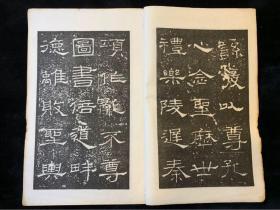 繇發以尊孔
心念聖歷世
禮樂陵遲秦
項作亂不尊
圖書倍道畔
德離敗聖輿